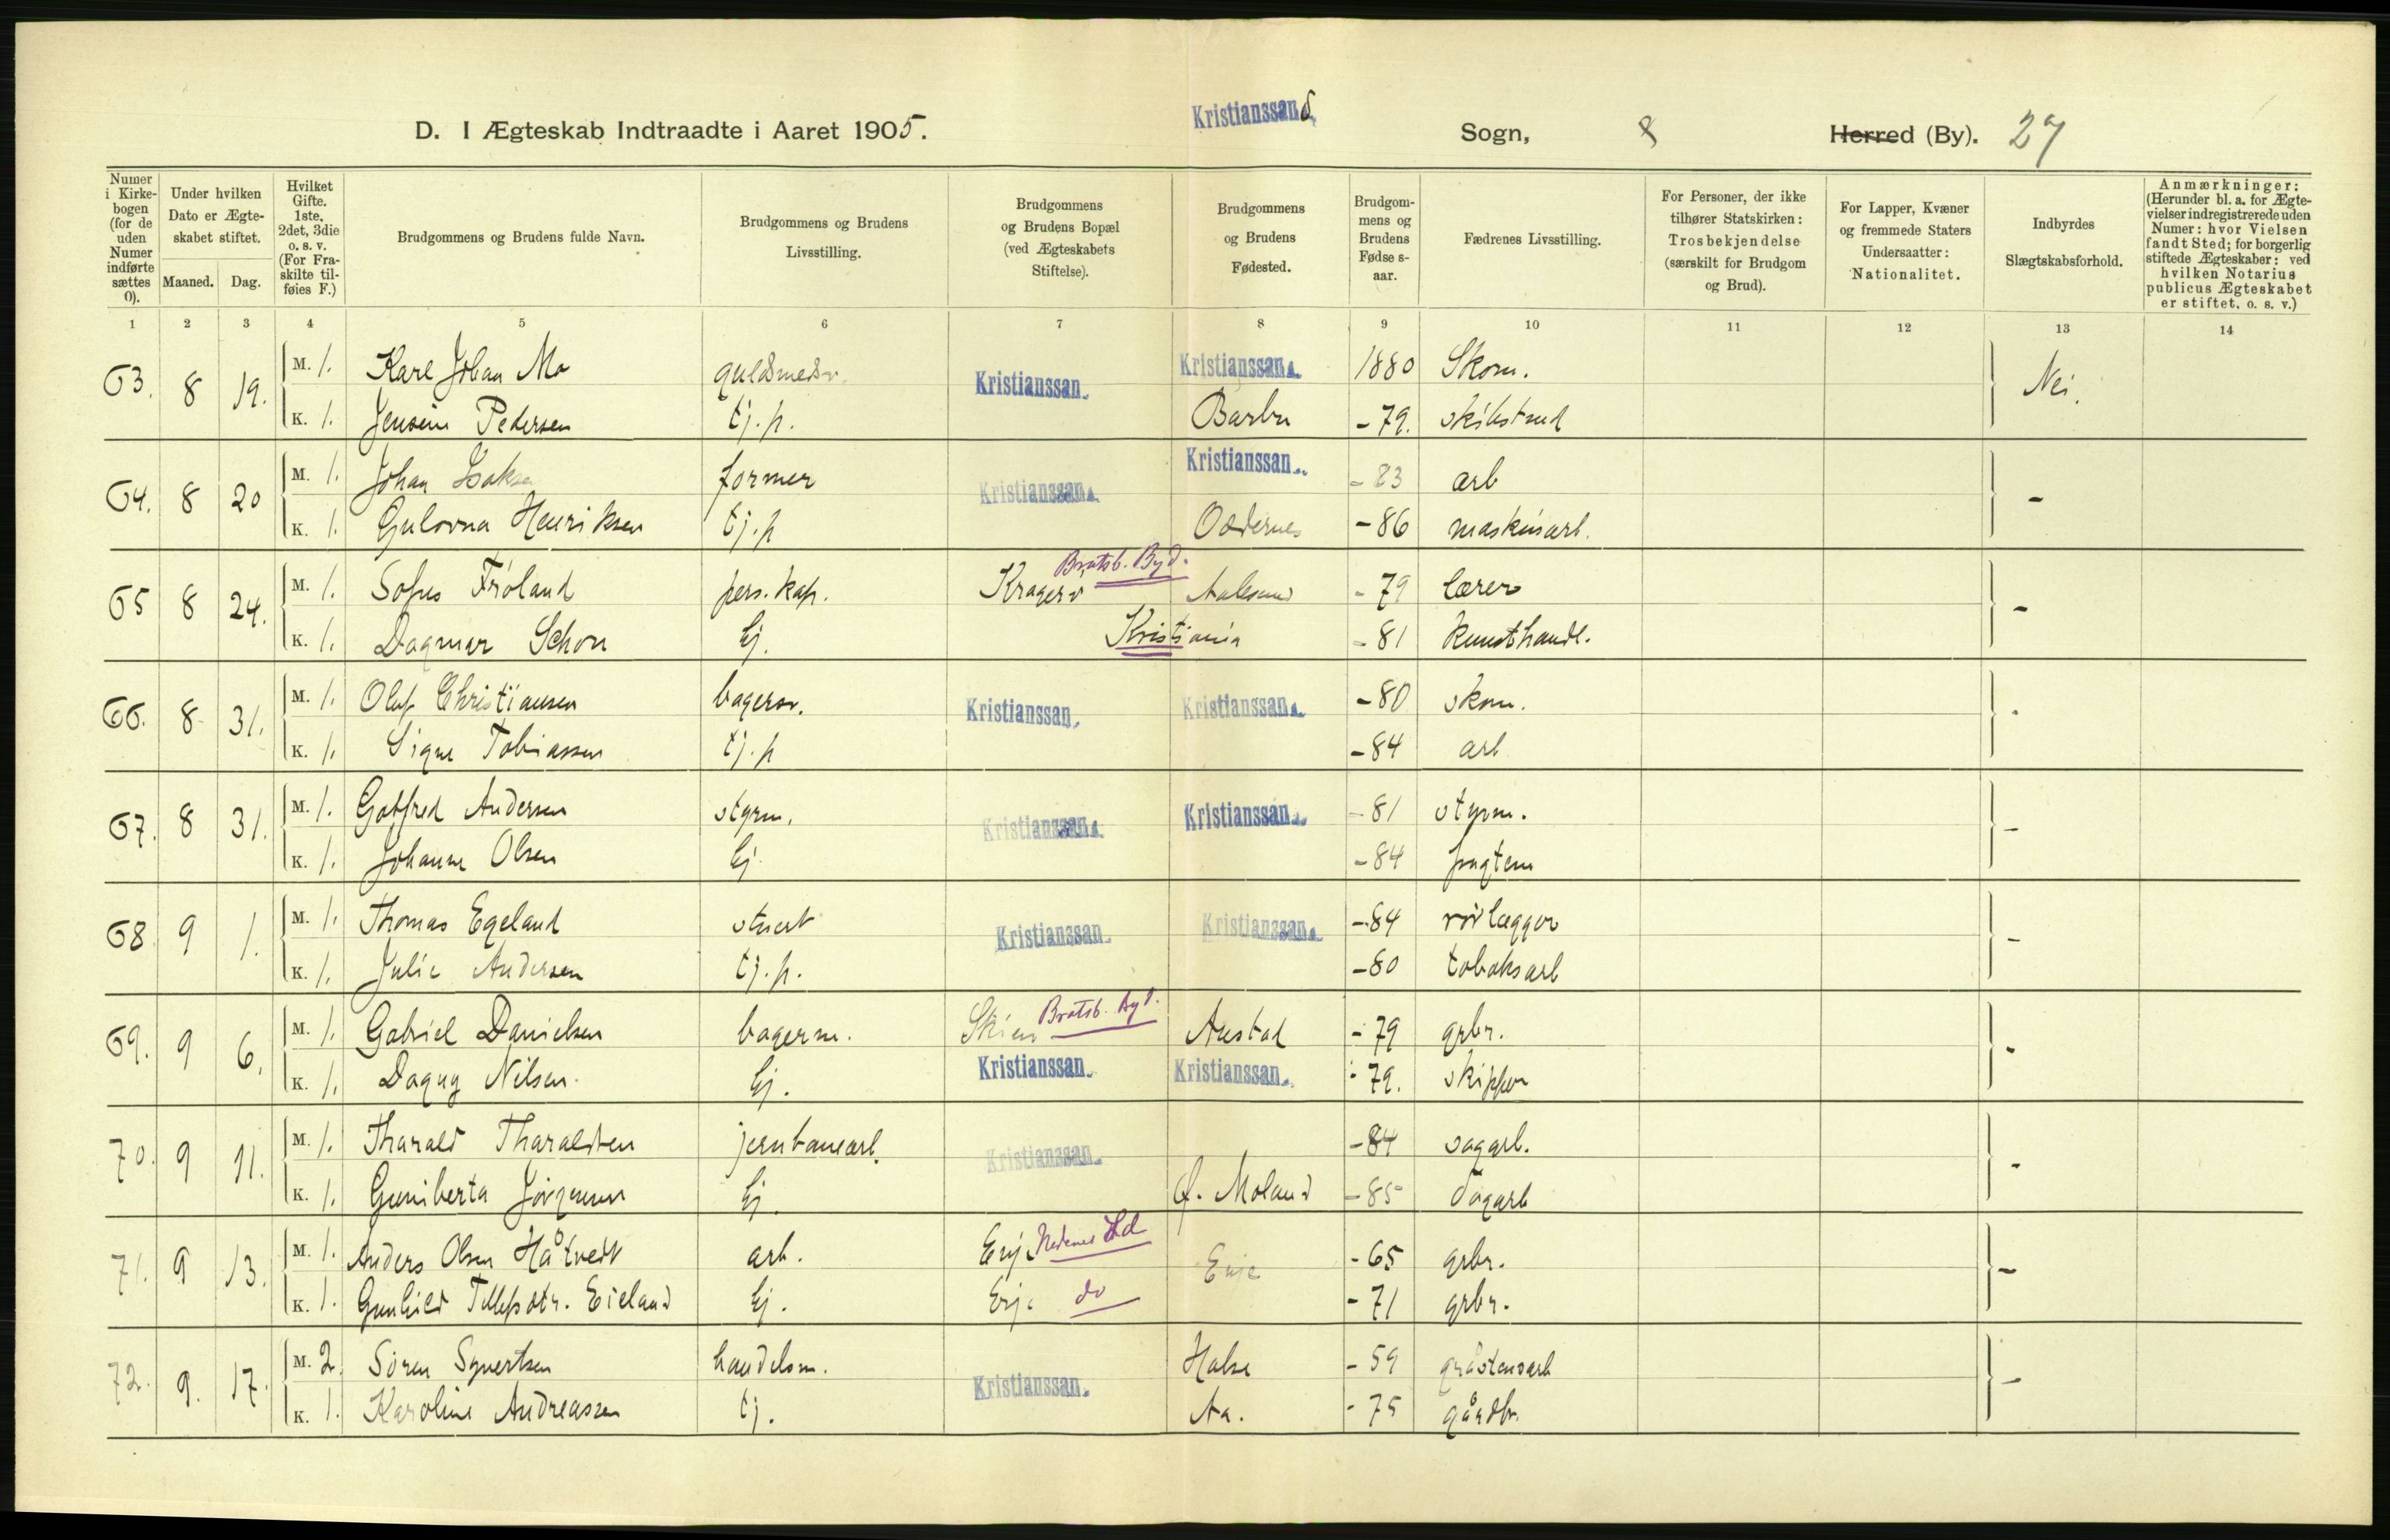 D. I Ægteskab Indtraadte i Aaret 1905.
Kristianssand
Sogn,
8
Herred (By).
27
Numer i Kirkebogen (for de uden Numer indførte sættes 0).
Under hvilken Dato er Ægteskabet stiftet.
Maaned.
Dag.
Hvilket Gifte. 1ste, 2det, 3die o. s. v. (For Fraskilte tilføies F.)
Brudgommens og Brudens fulde Navn.
Brudgommens og Brudens Livsstilling.
Brudgommens og Brudens Bopæl (ved Ægteskabets Stiftelse).
Brudgommens og Brudens Fødested.
Brudgommens og Brudens Fødselsaar.
Fædrenes Livsstilling.
For Personer, der ikke tilhører Statskirken: Trosbekjendelse (særskilt for Brudgom og Brud).
For Lapper, Kvæner og fremmede Staters Undersaatter: Nationalitet.
Indbyrdes Slægtskabsforhold.
Anmærkninger: (Herunder bl. a. for Ægtevielser indregistrerede uden Numer: hvor Vielsen fandt Sted; for borgerlig stiftede Ægteskaber: ved hvilken Notarius publicus Ægteskabet er stiftet. o. s. v.)
1 2 3 4 5 6 7 8 9 10 11 12 13 14
63. 8 19. M. 1. Karl Johan Mo guldmedsv. Kristianssan Kristianssan 1880 Skom. Nei.
K. 1. Jensine Pedersen tj. p. Barbu -79. skibstmd
64. 8 20 M. 1. Johan Isaksen former Kristianssan Kristianssan -83 arb -
K. 1. Gulovna Henriksen tj. p Oddernes -86 maskinarb.
65 8 24. M. 1. Sofus Frøland pers. kap. Kragerø Bratsb. Byd. Aalesund -79 lærer -
K. 1. Dagmar Schou Ej. Kristiania -81 kunsthandl.
66. 8 31. M. 1. Oluf Christiansen bagersv. Kristianssan Kristianssan -80 skom. -
K. 1. Signe Tobiassen tj. p -84 arb
67. 8 31. M. 1. Gotfred Andersen styrm. Kristianssan Kristianssan -81 styrm. -
K. 1. Johanne Olsen Ej. -84 fragtem
68 9 1. M. 1. Thomas Egeland stuert Kristianssan Kristianssan -84 rørlægger -
K. 1. Julie Andersen tj. p. -80 tobaksarb
69. 9 6. M. 1. Gabriel Danielsen bagerm. Skien Bratsb. Byd. Austad -79 grbr. -
K. 1. Dagny Nilsen. Ej. Kristianssan Kristianssan -79. skipper
70. 9 11. M. 1. Tharald Tharaldsen jernbanearb. Kristianssan -84 sagarb. -
K. 1. Guniberta Jørgensen Ej. Ø. Moland -85 dagarb
71. 9 13. M. 1. Anders Olsen Håtvedt arb. Evje Nedenes Ld Evje -65 grbr. -
K. 1. Gunhild Tellefsdtr. Eieland Ej. Evje do -71 grbr.
72. 9. 17. M. 2. Søren Syvertsen handelsm. Kristianssan Halse -59 gråstensarb -
K. 1. Karoline Andreassen tj. Aa. -75 gårdbr.